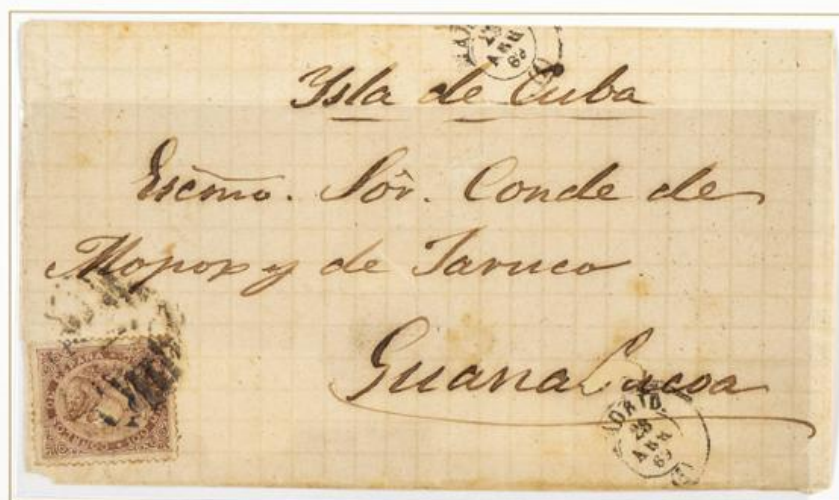 Ysla de Cuba
Escmo. Sôr. Conde de
Mopox y de Jaruco
Guanabacoa
MADRID
28
ABR
69